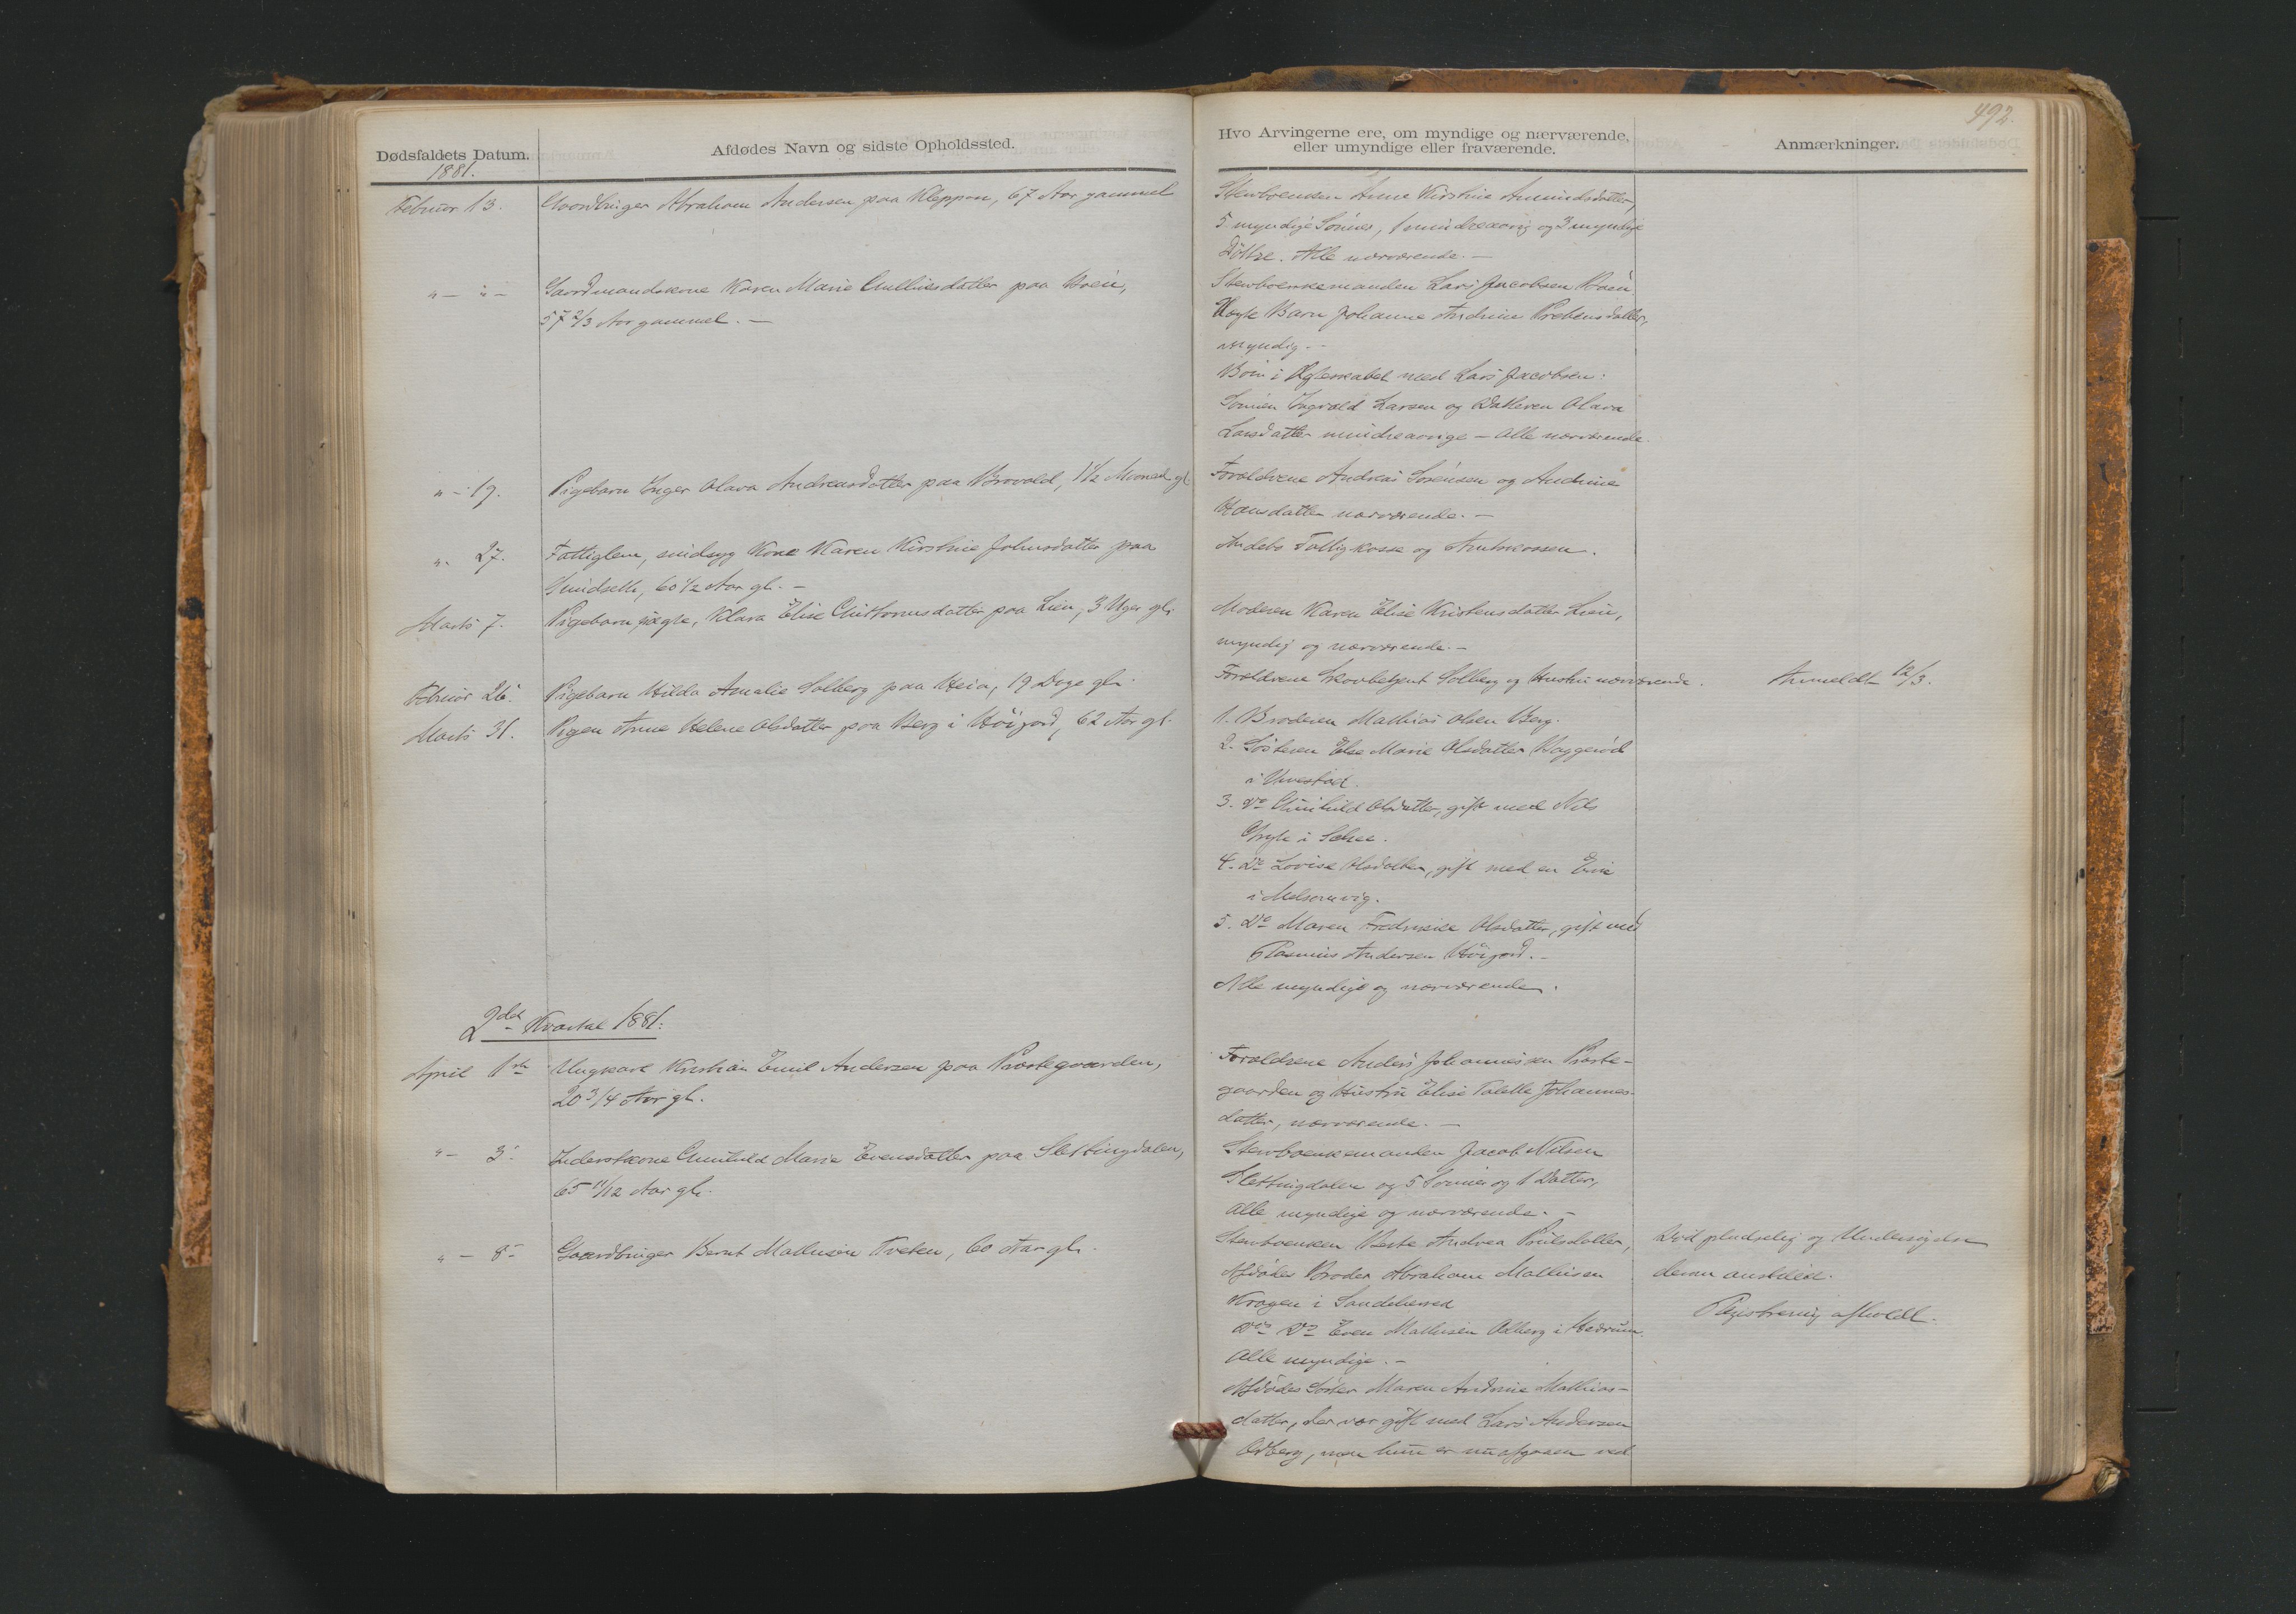 492.
Dødsfaldets Datum.
Afdødes Navn og sidste Opholdssted.
Hvo Arvingerne ere, om myndige og nærværende,
eller umyndige eller fraværende.
Anmærkninger.
1881.
Februar 13.
Gaardbruger Abraham Andersen paa Kleppan, 67 Aar gammel
Enken Anne Kirstine Amundsdatter,
5 myndige Sönner, 1 mindreaarig og 3 myndige
Döttre. Alle nærværende. —
" — " —
Gaardmandskone Karen Marie Gulliksdatter paa Hvein,
57 2/3 Aar gammel. —
Lars Jacobsen
Barn Johanne Andrine Prebensdatter,
myndig. —
Börn i Ægteskabet med Lars Jacobsen:
Sönnen Ingvald Larsen og Datteren Olava
Larsdatter mindreaarige — Alle nærværende.
" — 19.
Pigebarn Inger Olava Andreasdatter paa Brovold, 1 1/2 Maaned gl.
Forældrene Andreas Sörensen og Andrine
Hansdatter nærværende. —
" 27.
Fattiglem, sindsyg Kone Karen Kirstine Johnsdatter paa
60 1/2 Aar gl. —
Andebu Fattigkasse og Amtskassen.
Marts 7.
Pigebarn uægte, Klara Elise paa Lien, 3 Uger gl.
Moderen Karen Elise Kristensdatter Lien,
myndig og nærværende. —
Februar 26.
Pigebarn Hilda Amalie Solberg paa Heia, 19 Dage gl.
Forældrene Skovbetjent Solberg og Hustru nærværende.
Anmeldt 12/3.
Marts 31.
Pigen Anne Helene Olsdatter paa Berg i Höijord, 62 Aar gl.
1. Broderen Mathias Olsen Berg.
2. Sösteren Else Marie Olsdatter
i
3. Do Gunhild Olsdatter, gift med Nils
i
4. Do Lovise Olsdatter, gift med en
i Melsomvig.
5. Do Maren Fredrikke Olsdatter, gift med
Rasmus Andersen Höijord. —
Alle myndige og nærværende.
2det Kvartal 1881:
April 1ste
Ungkarl Kristian Emil Andersen paa Præstegaarden,
20 3/4 Aar gl.
Forældrene Anders Johannesen Præste-
gaarden og Hustru Elise Johannes-
datter, nærværende. —
" — 3.
Inderstkone Gunhild Marie Evensdatter paa Slettingdalen,
65 11/12 Aar gl.
Jacob Nilsen
Slettingdalen og 5 Sönner og 1 Datter,
Alle myndige og nærværende. —
" — 8.
Gaardbruger Bernt Mathisen Tveten, 60 Aar gl.
Andrea
Afdödes Broder Abraham Mathisen
i Sandeherred
Do Do Even Mathisen Odberg i Hedrum.
Alle myndige. —
Afdödes Söster Maren Andrine Mathias-
datter, der var gift med Lars Andersen
Odberg, men hun er nu afgaaen ved
Död pludselig og
derom anstillet.
Registrering afholdt.